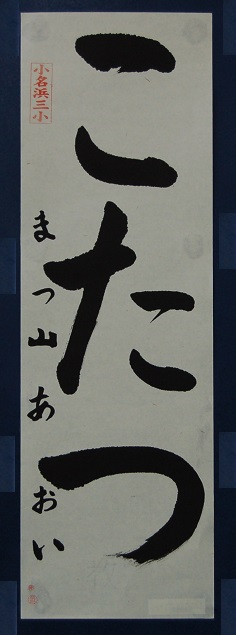 こたつ
小名浜三小
まつ山あおい